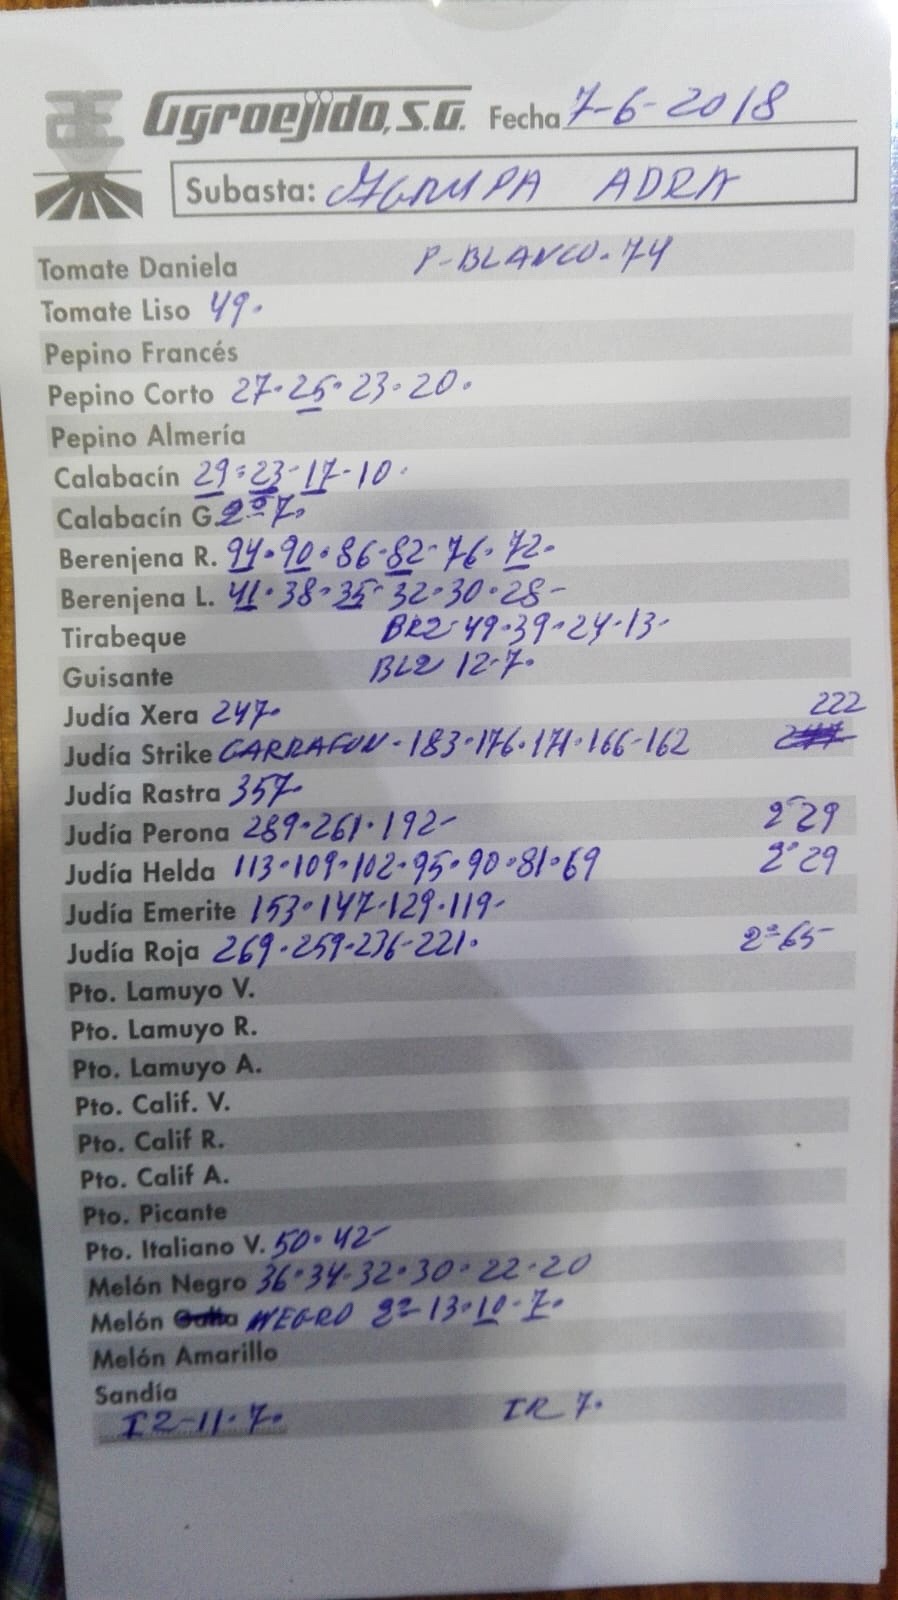 Agroejido, S.A. Fecha 7-6-2018
Subasta: AGRUPA ADRA
Tomate Daniela P-BLANCO-74
Tomate Liso 49.
Pepino Francés
Pepino Corto 27.25.23.20.
Pepino Almería
Calabacín 29=23-17-10.
Calabacín G. 2ª 7.
Berenjena R. 94.90.86.82-76.72.
Berenjena L. 41.38-35-32.30.28-
Tirabeque BR2-49.39-24-13-
Guisante BL2 12-7.
Judía Xera 247. 222
Judía Strike GARRAFON-183.176.171.166-162
Judía Rastra 357.
Judía Perona 289.261.192- 2ª29
Judía Helda 113.109.102.95.90.81.69 2ª29
Judía Emerite 153.147-129.119-
Judía Roja 269.259-236-221. 2ª65-
Pto. Lamuyo V.
Pto. Lamuyo R.
Pto. Lamuyo A.
Pto. Calif. V.
Pto. Calif R.
Pto. Calif A.
Pto. Picante
Pto. Italiano V. 50.42-
Melón Negro 36.34-32.30.22.20
Melón NEGRO 2ª-13.10.7.
Melón Amarillo
Sandía
I2-11.7. IR 7.